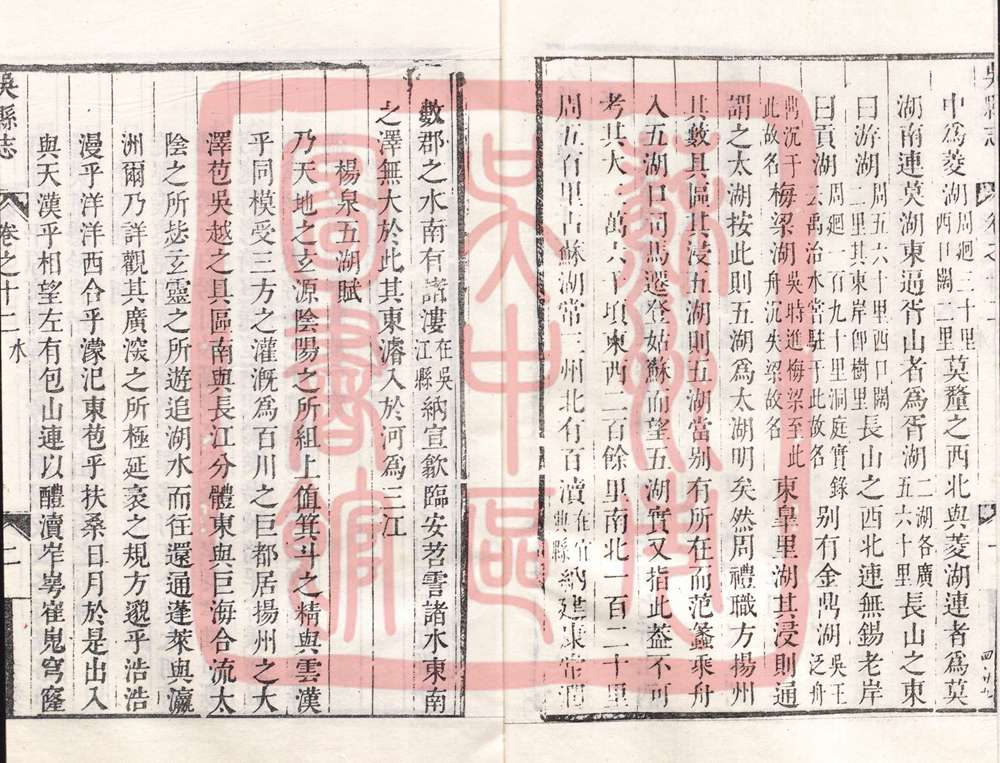 中為菱湖周廻三十里西口闊二里莫釐之西北與菱湖連者為莫
湖南連莫湖東逼胥山者為胥湖二湖各廣五六十里長山之東
曰游湖周五六十里西口闊二里其東岸卽樹里長山之西北連無錫老岸
曰貢湖周廻一百九十里洞庭實錄云禹治水嘗駐于此故名别有金鼎湖吳王泛舟
鼎沉于此故名梅梁湖吳時進梅梁至此舟沉失梁故名東皐里湖其浸則通
謂之太湖按此則五湖為太湖明矣然周禮職方揚州
其藪具區其浸五湖則五湖當别有所在而范蠡乘舟
入五湖口司馬遷登姑蘇而望五湖實又指此葢不可
考其大 萬六千頃東西二百餘里南北一百二十里
周五百里占蘇湖常三州北有百瀆在宜興縣納建康常潤
數郡之水南有諸漊在吳江縣納宣歙臨安苕霅諸水東南
之澤無大於此其東濬入於河為三江
楊泉五湖賦
乃天地之玄源陰陽之所徂上值箕斗之精與雲漢
乎同模受三方之灌漑為百川之巨都居揚州之大
澤苞吳越之具區南與長江分體東與巨海合流太
陰之所毖玄靈之所遊追湖水而往還通蓬萊與瀛
洲爾乃詳觀其廣深之所極延袤之規方邈乎浩浩
漫乎洋洋西合乎濛汜東苞乎扶桑日月於是出入
與天漢乎相望左有包山連以醴瀆岝崿崔嵬穹窿
吳縣志
卷之十二 水
二
蘇州市
吳中區
圖書館